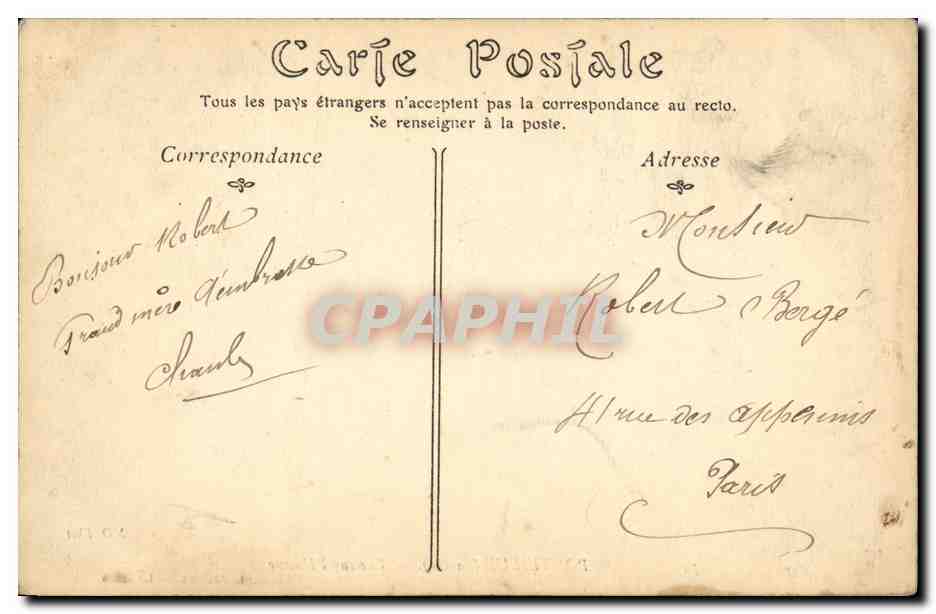 Carte Postale
Tous les pays étrangers n'acceptent pas la correspondance au recto.
Se renseigner à la poste.
Correspondance
Adresse
Bonjour Robert
Grand mère t'embrasse
Monsieur
Robert Bergé
41 rue des appennins
Paris
CPAPHIL